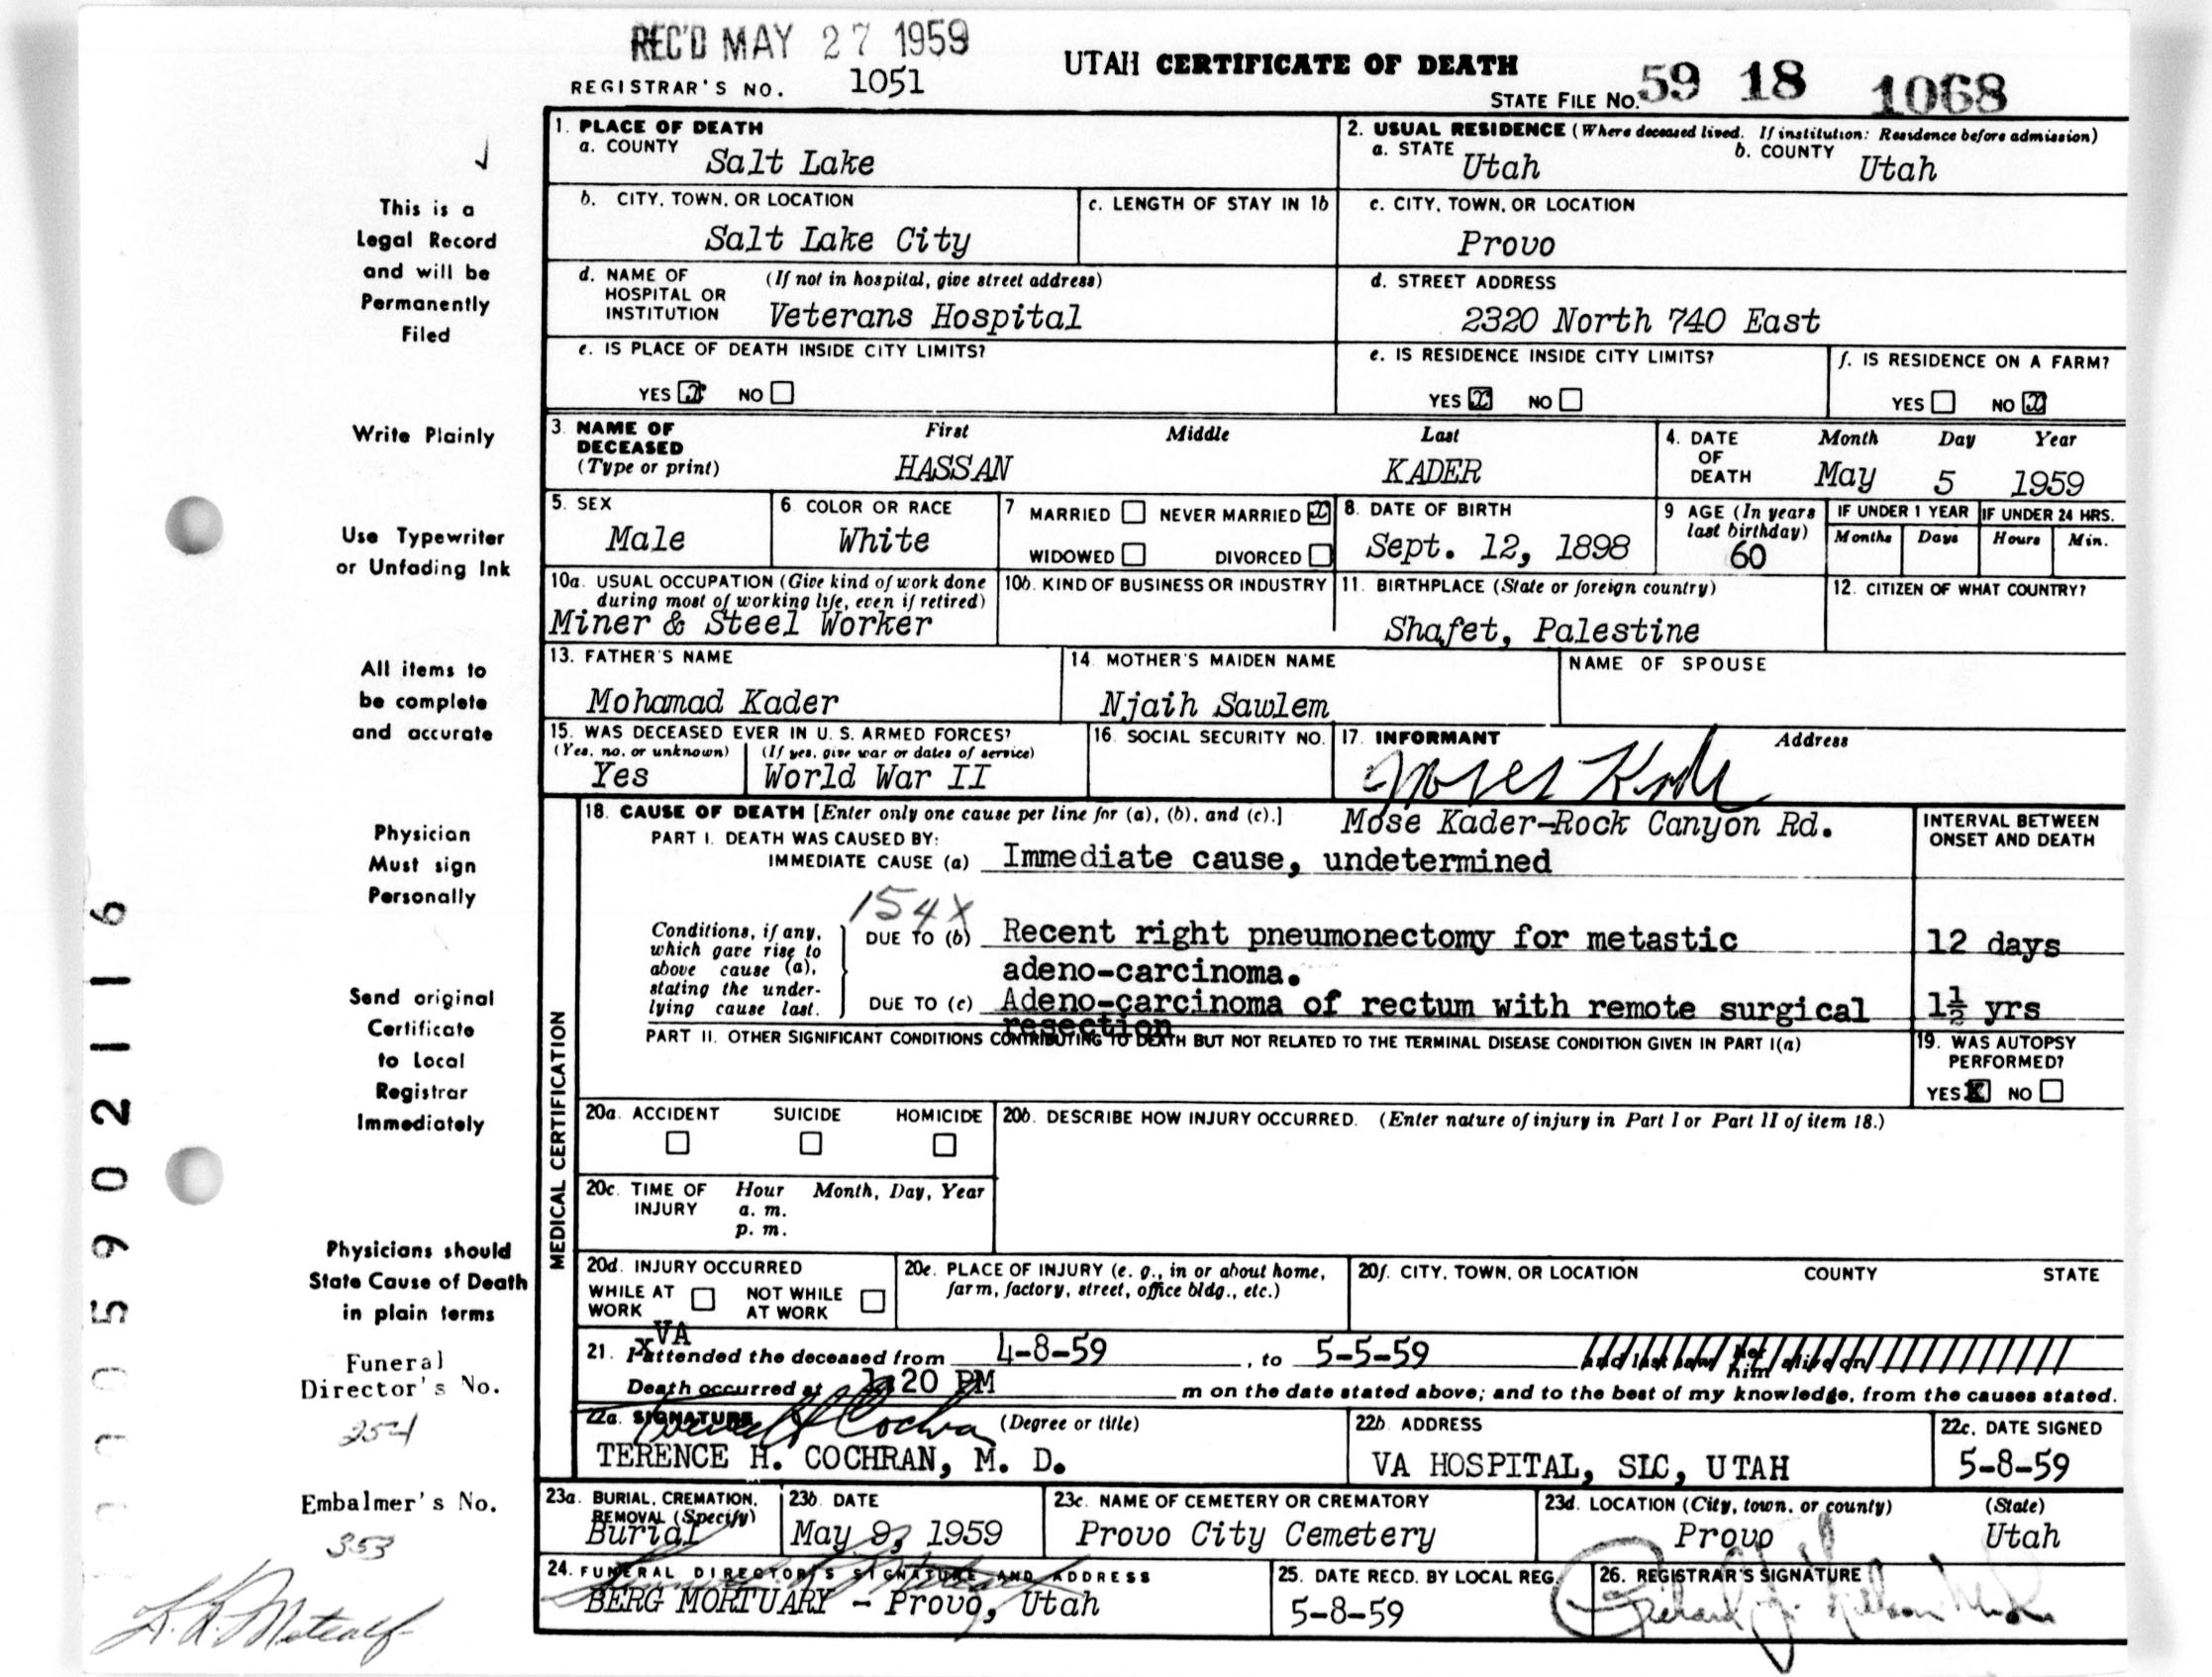 REC'D MAY 27 1959
REGISTRAR'S NO. 1051
UTAH CERTIFICATE OF DEATH
STATE FILE NO. 59 18 1068
This is a
Legal Record
and will be
Permanently
Filed
Write Plainly
Use Typewriter
or Unfading Ink
All items to
be complete
and accurate
Physician
Must sign
Personally
Send original
Certificate
to Local
Registrar
Immediately
Physicians should
State Cause of Death
in plain terms
Funeral
Director's No.
254
Embalmer's No.
353
1. PLACE OF DEATH
a. COUNTY Salt Lake
2. USUAL RESIDENCE (Where deceased lived. If institution: Residence before admission)
a. STATE Utah b. COUNTY Utah
b. CITY, TOWN, OR LOCATION
Salt Lake City
c. LENGTH OF STAY IN 1b
c. CITY, TOWN, OR LOCATION
Provo
d. NAME OF HOSPITAL OR INSTITUTION (If not in hospital, give street address)
Veterans Hospital
d. STREET ADDRESS
2320 North 740 East
e. IS PLACE OF DEATH INSIDE CITY LIMITS?
YES x NO
e. IS RESIDENCE INSIDE CITY LIMITS?
YES x NO
f. IS RESIDENCE ON A FARM?
YES NO x
3. NAME OF DECEASED (Type or print) First Middle Last
HASSAN KADER
4. DATE OF DEATH Month Day Year
May 5 1959
5. SEX
Male
6. COLOR OR RACE
White
7 MARRIED NEVER MARRIED x
WIDOWED DIVORCED
8. DATE OF BIRTH
Sept. 12, 1898
9 AGE (In years last birthday)
60
IF UNDER 1 YEAR IF UNDER 24 HRS.
Months Days Hours Min.
10a. USUAL OCCUPATION (Give kind of work done during most of working life, even if retired)
Miner & Steel Worker
10b. KIND OF BUSINESS OR INDUSTRY
11. BIRTHPLACE (State or foreign country)
Shafet, Palestine
12. CITIZEN OF WHAT COUNTRY?
13. FATHER'S NAME
Mohamad Kader
14. MOTHER'S MAIDEN NAME
Njaih Sawlem
NAME OF SPOUSE
15. WAS DECEASED EVER IN U. S. ARMED FORCES?
(Yes, no, or unknown) (If yes, give war or dates of service)
Yes World War II
16. SOCIAL SECURITY NO.
17. INFORMANT Address
Mose Kader-Rock Canyon Rd.
MEDICAL CERTIFICATION
18. CAUSE OF DEATH [Enter only one cause per line for (a), (b), and (c).]
PART I. DEATH WAS CAUSED BY:
IMMEDIATE CAUSE (a) Immediate cause, undetermined
INTERVAL BETWEEN ONSET AND DEATH
154X
Conditions, if any, which gave rise to above cause (a), stating the underlying cause last.
DUE TO (b) Recent right pneumonectomy for metastic
adeno-carcinoma.
12 days
DUE TO (c) Adeno-carcinoma of rectum with remote surgical
resection
1½ yrs
PART II. OTHER SIGNIFICANT CONDITIONS CONTRIBUTING TO DEATH BUT NOT RELATED TO THE TERMINAL DISEASE CONDITION GIVEN IN PART I(a)
19. WAS AUTOPSY PERFORMED?
YES X NO
20a. ACCIDENT SUICIDE HOMICIDE
20b. DESCRIBE HOW INJURY OCCURRED. (Enter nature of injury in Part I or Part II of item 18.)
20c. TIME OF INJURY Hour Month, Day, Year
a. m.
p. m.
20d. INJURY OCCURRED
WHILE AT WORK NOT WHILE AT WORK
20e. PLACE OF INJURY (e. g., in or about home, farm, factory, street, office bldg., etc.)
20f. CITY, TOWN, OR LOCATION COUNTY STATE
VA
21. I attended the deceased from 4-8-59, to 5-5-59 and last saw her him alive on
Death occurred at 20 PM m on the date stated above; and to the best of my knowledge, from the causes stated.
22a. SIGNATURE (Degree or title)
TERENCE H. COCHRAN, M. D.
22b. ADDRESS
VA HOSPITAL, SLC, UTAH
22c. DATE SIGNED
5-8-59
23a. BURIAL, CREMATION, REMOVAL (Specify)
Burial
23b. DATE
May 9, 1959
23c. NAME OF CEMETERY OR CREMATORY
Provo City Cemetery
23d. LOCATION (City, town, or county) (State)
Provo Utah
24. FUNERAL DIRECTOR'S SIGNATURE AND ADDRESS
BERG MORTUARY - Provo, Utah
25. DATE RECD. BY LOCAL REG.
5-8-59
26. REGISTRAR'S SIGNATURE